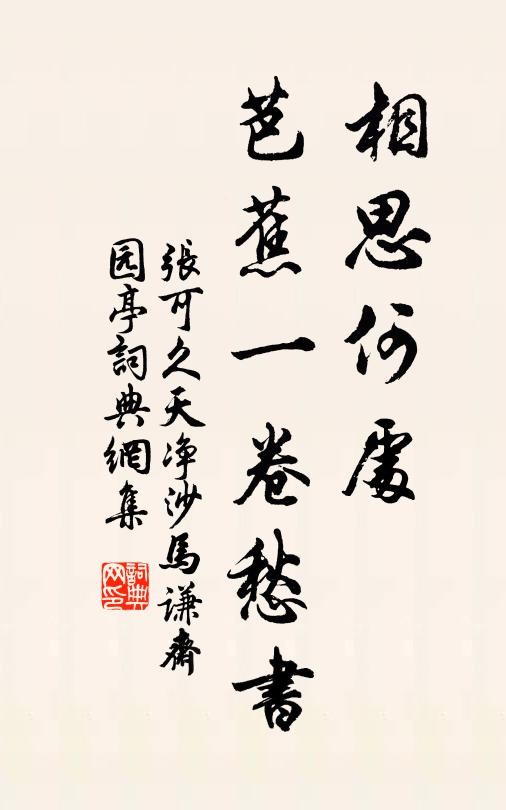 相思何處
芭蕉一卷愁書
張可久天净沙馬謙齋
园亭詞典網集
詞典网印